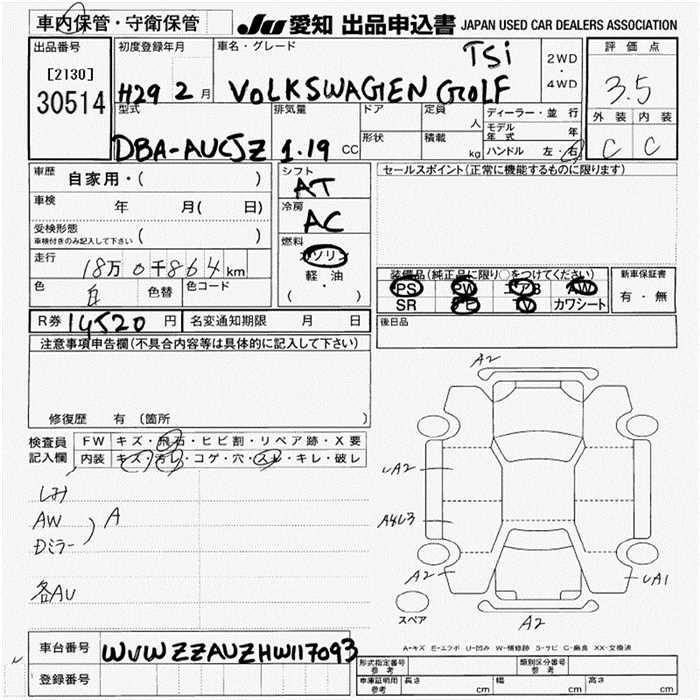 車内保管・守衛保管
JU 愛知 出品申込書 JAPAN USED CAR DEALERS ASSOCIATION
出品番号
[2130]
30514
初度登録年月
H29 2 月
車名・グレード
TSi
VOLKSWAGEN GOLF
2WD
・
4WD
評価点
3.5
外装 内装
C C
型式
DBA-AUCJZ
排気量
1.19 CC
ドア
形状
定員
人
積載
kg
ディーラー・並行
モデル年式 年
ハンドル 左・右
車歴
自家用・( )
車検
年 月( 日)
受検形態
車検付きのみ記入して下さい ( )
走行
18万0千864km
色
白
色替
色コード
R券 14520 円
名変通知期限 月 日
シフト
AT
冷房
AC
燃料
ガソリン
軽・油
( ・ )
セールスポイント(正常に機能するものに限ります)
装備品(純正品に限り○をつけてください)
PS PW エアB AW
SR ナビ TV カワシート
新車保証書
有・無
後日品
注意事項申告欄(不具合内容等は具体的に記入して下さい)
修復歴 有 (箇所 )
検査員記入欄
FW キズ・飛石・ヒビ割・リペア跡・X要
内装 キズ・汚レ・コゲ・穴・スレ・キレ・破レ
AW
Dミラー
A
各AU
A2
UA2
A4U3
A2
UA1
A2
スペア
A-キズ E-エクボ U-凹み W-補修跡 S-サビ C-腐食 XX-交換済
車台番号
WVWZZZAUZHW117093
登録番号
形式指定番号
参考
類別区分番号
参考
車庫証明用
参考
長さ cm
幅 cm
高さ cm